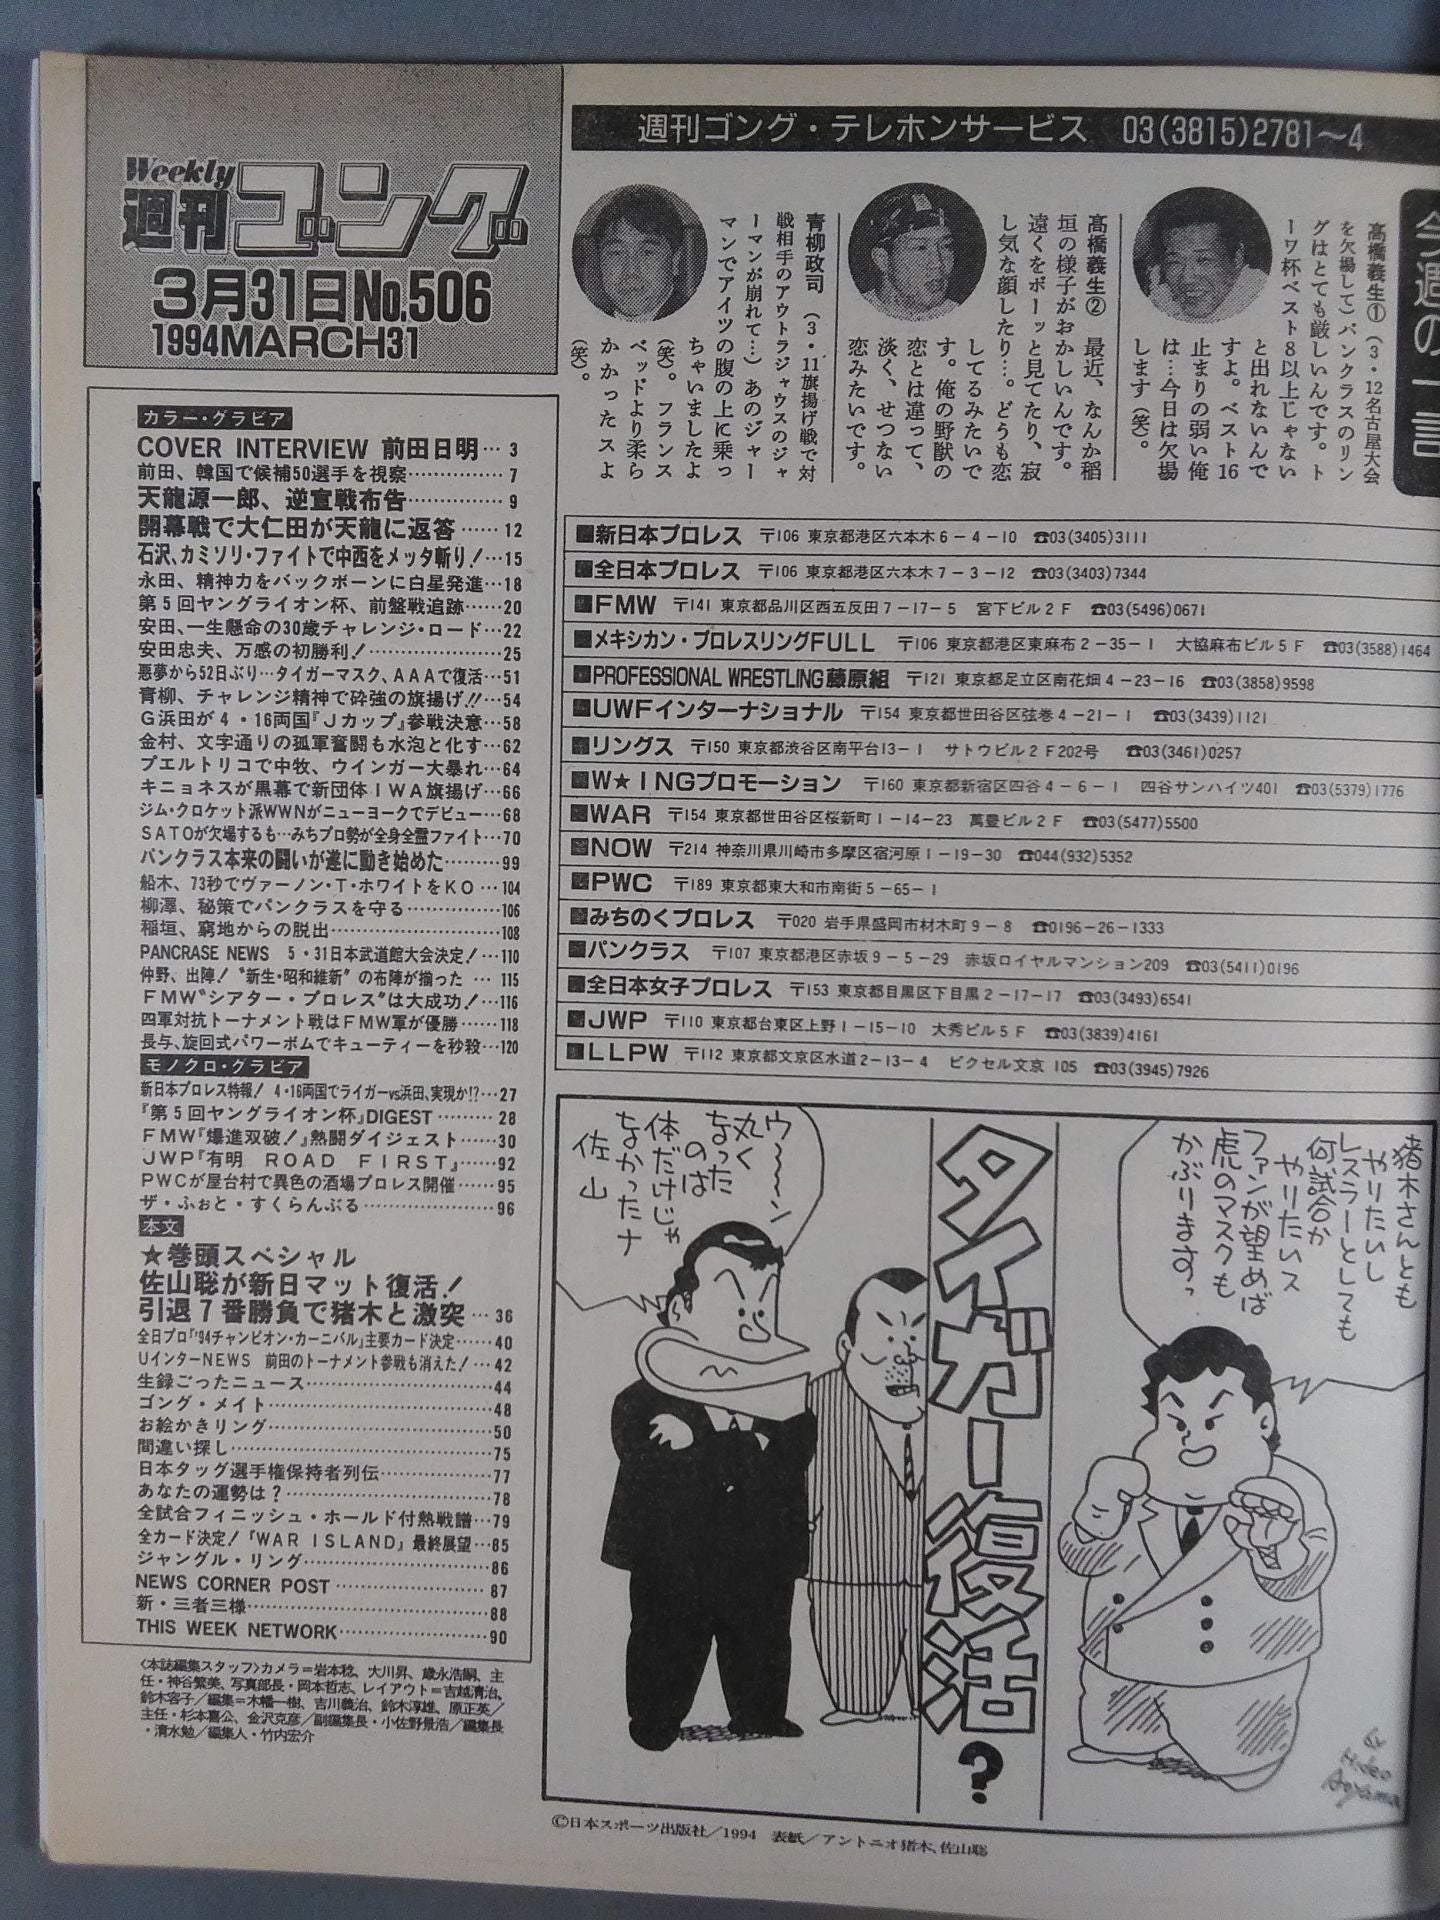 Weekly
週刊ゴング
3月31日No.506
1994MARCH31
カラー・グラビア
COVER INTERVIEW 前田日明… 3
前田、韓国で候補50選手を視察…………… 7
天龍源一郎、逆宣戦布告…………… 9
開幕戦で大仁田が天龍に返答…… 12
石沢、カミソリ・ファイトで中西をメッタ斬り!…15
永田、精神力をバックボーンに白星発進…18
第5回ヤングライオン杯、前盤戦追跡……20
安田、一生懸命の30歳チャレンジ・ロード…22
安田忠夫、万感の初勝利!……………25
悪夢から52日ぶり…タイガーマスク、AAAで復活…51
青柳、チャレンジ精神で砕強の旗揚げ!!…54
G浜田が4・16両国『Jカップ』参戦決意…58
金村、文字通りの孤軍奮闘も水泡と化す…62
プエルトリコで中牧、ウインガー大暴れ…64
キニョネスが黒幕で新団体IWA旗揚げ…66
ジム・クロケット派WWNがニューヨークでデビュー…68
SATOが欠場するも…みちプロ勢が全身全霊ファイト…70
パンクラス本来の闘いが遂に動き始めた………99
船木、73秒でヴァーノン・T・ホワイトをKO …104
柳澤、秘策でパンクラスを守る……………106
稲垣、窮地からの脱出……………………108
PANCRASE NEWS 5・31日本武道館大会決定!…110
仲野、出陣!〝新生・昭和維新〞の布陣が揃った … 115
FMW〝シアター・プロレス〞は大成功!…116
四軍対抗トーナメント戦はFMW軍が優勝……118
長与、旋回式パワーボムでキューティーを秒殺…120
モノクロ・グラビア
新日本プロレス特報! 4・16両国でライガーvs浜田、実現か!?…27
『第5回ヤングライオン杯』DIGEST ……… 28
FMW『爆進双破!』熱闘ダイジェスト……30
JWP『有明 ROAD FIRST』……92
PWCが屋台村で異色の酒場プロレス開催……95
ザ・ふぉと・すくらんぶる……………………96
本文
★巻頭スペシャル
佐山聡が新日マット復活!
引退7番勝負で猪木と激突… 36
全日プロ『'94チャンピオン・カーニバル』主要カード決定……40
UインターNEWS 前田のトーナメント参戦も消えた!…42
生録ごったニュース……………………44
ゴング・メイト……………………48
お絵かきリング……………………50
間違い探し……………………75
日本タッグ選手権保持者列伝……………77
あなたの運勢は?……………………78
全試合フィニッシュ・ホールド付熱戦譜…79
全カード決定!『WAR ISLAND』最終展望…85
ジャングル・リング……………………86
NEWS CORNER POST………………87
新・三者三様……………………88
THIS WEEK NETWORK………………90
〈本誌編集スタッフ〉カメラ=岩本稔、大川昇、歳永浩嗣、主
任・神谷繁美、写真部長・岡本哲志、レイアウト=吉越清治、
鈴木容子/編集=木幡一樹、吉川義治、鈴木淳雄、原正英/
主任・杉本喜公、金沢克彦/副編集長・小佐野景浩/編集長
・清水勉/編集人・竹内宏介
週刊ゴング・テレホンサービス 03(3815)2781〜4
今週の一言
高橋義生①(3・12名古屋大会
を欠場して)パンクラスのリン
グはとても厳しいんです。ト
ーワ杯ベスト8以上じゃない
と出れないんで
すよ。ベスト16
止まりの弱い俺
は…今日は欠場
します(笑)。
高橋義生② 最近、なんか稲
垣の様子がおかしいんです。
遠くをボーッと見てたり、寂
し気な顔したり…。どうも恋
してるみたいで
す。俺の野獣の
恋とは違って、
淡く、せつない
恋みたいです。
青柳政司(3・11旗揚げ戦で対
戦相手のアウトラジャウスのジャ
ーマンが崩れて…)あのジャー
マンでアイツの腹の上に乗っ
ちゃいましたよ
(笑)。フランス
ベッドより柔ら
かかったスよ
(笑)。
■新日本プロレス 〒106 東京都港区六本木6-4-10 ☎03(3405)3111
■全日本プロレス 〒106 東京都港区六本木7-3-12 ☎03(3403)7344
■FMW 〒141 東京都品川区西五反田7-17-5 宮下ビル2F ☎03(5496)0671
■メキシカン・プロレスリングFULL 〒106 東京都港区東麻布2-35-1 大協麻布ビル5F ☎03(3588)1464
■PROFESSIONAL WRESTLING藤原組 〒121 東京都足立区南花畑4-23-16 ☎03(3858)9598
■UWFインターナショナル 〒154 東京都世田谷区弦巻4-21-1 ☎03(3439)1121
■リングス 〒150 東京都渋谷区南平台13-1 サトウビル2F202号 ☎03(3461)0257
■W★INGプロモーション 〒160 東京都新宿区四谷4-6-1 四谷サンハイツ401 ☎03(5379)1776
■WAR 〒154 東京都世田谷区桜新町1-14-23 萬豊ビル2F ☎03(5477)5500
■NOW 〒214 神奈川県川崎市多摩区宿河原1-19-30 ☎044(932)5352
■PWC 〒189 東京都東大和市南街5-65-1
■みちのくプロレス 〒020 岩手県盛岡市材木町9-8 ☎0196-26-1333
■パンクラス 〒107 東京都港区赤坂9-5-29 赤坂ロイヤルマンション209 ☎03(5411)0196
■全日本女子プロレス 〒153 東京都目黒区下目黒2-17-17 ☎03(3493)6541
■JWP 〒110 東京都台東区上野1-15-10 大秀ビル5F ☎03(3839)4161
■LLPW 〒112 東京都文京区水道2-13-4 ピクセル文京105 ☎03(3945)7926
猪木さんとも
やりたいし
レスラーとしても
何試合か
やりたいス
ファンが望めば
虎のマスクも
かぶりますっ
タイガー復活?
ウ〜〜ン
丸く
なった
のは
体だけじゃ
なかったナ
佐山
Hideo
Aoyama
©日本スポーツ出版社/1994 表紙/アントニオ猪木、佐山聡